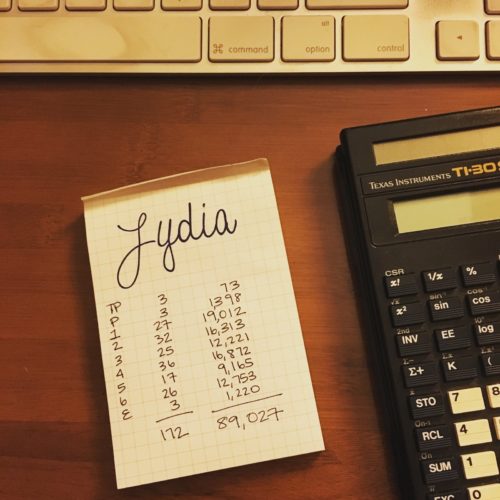 command
option
control
TEXAS INSTRUMENTS TI-30
Lydia
TP 3 73
P 3 1,398
1 27 19,012
2 32 16,313
3 25 12,221
4 36 16,872
5 17 9,165
6 26 12,753
E 3 1,220
172 89,027
CSR
x! 1/x %
√x x² sin⁻¹ sin cos⁻¹ cos
2nd INV EE log
Σ+ K (
STO 7
RCL 4
SUM 1
EXC 0